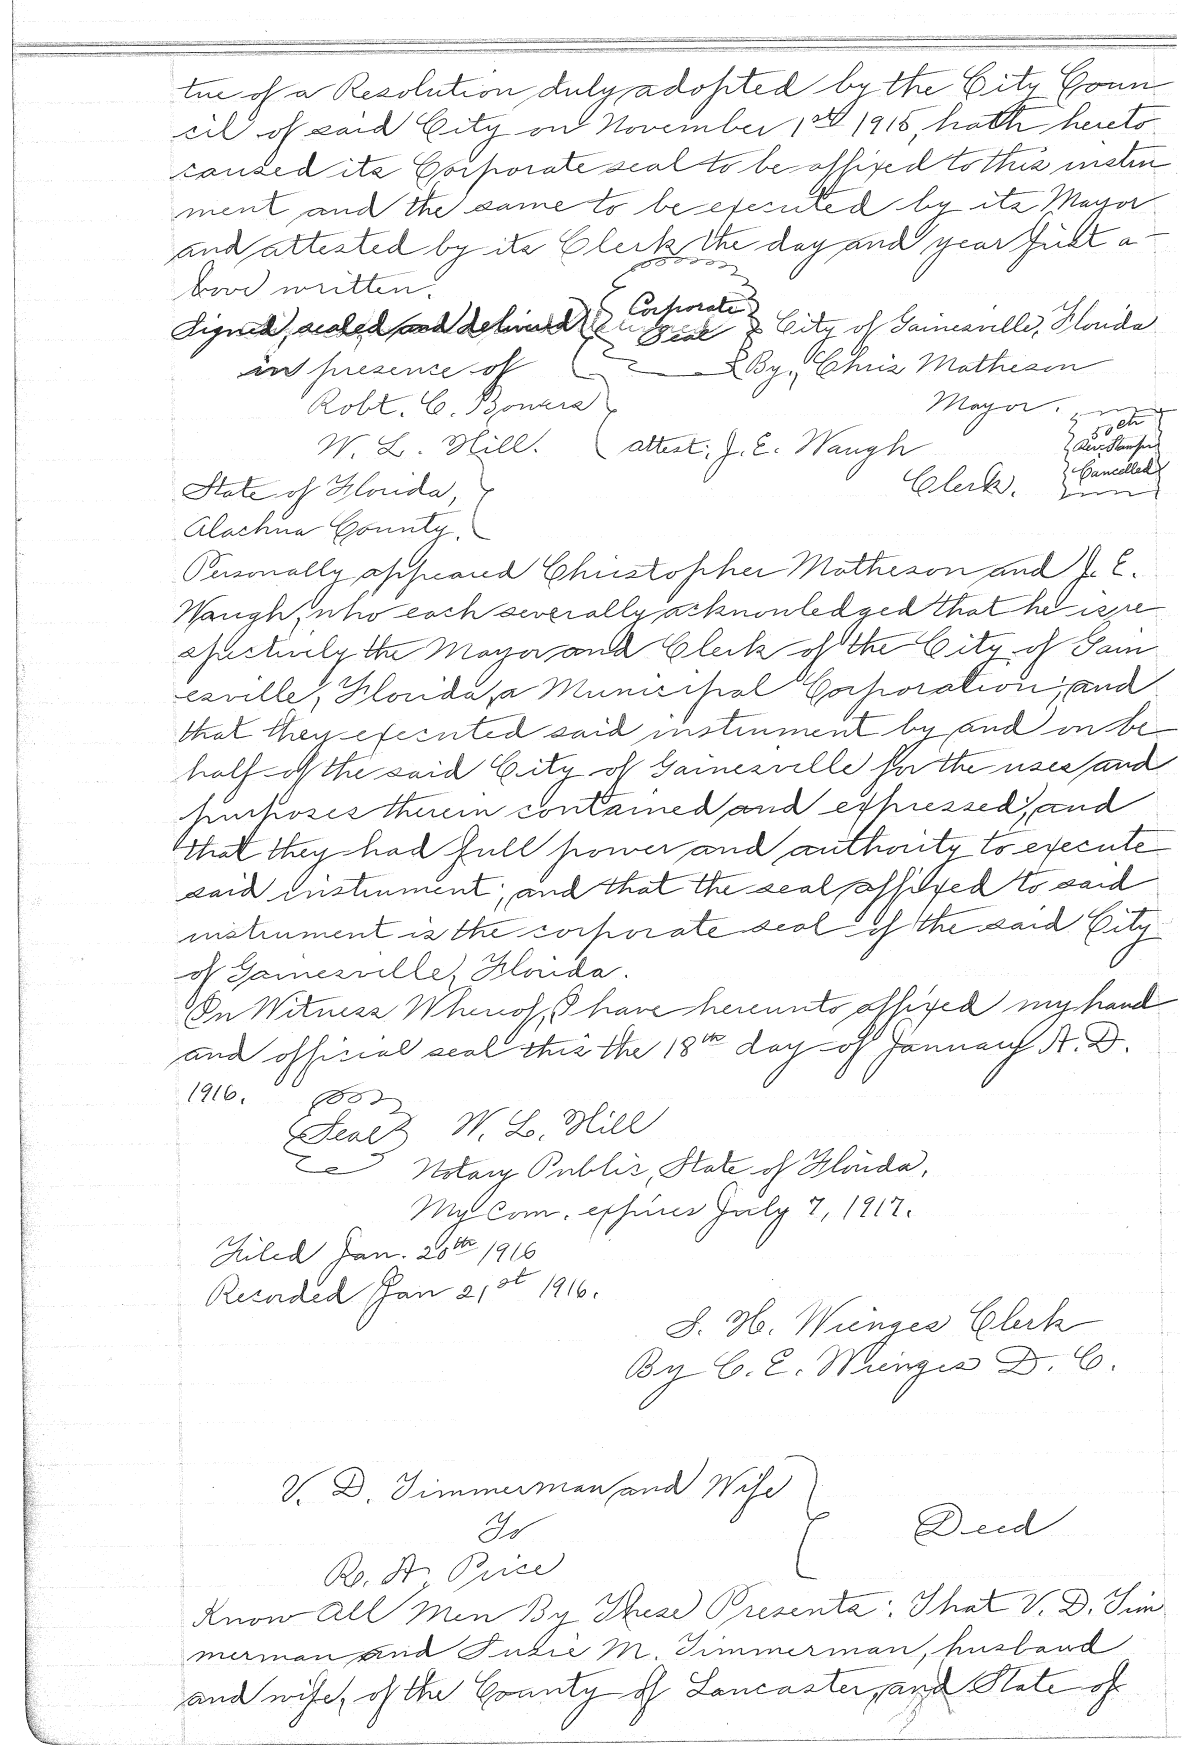 tue of a Resolution duly adopted by the City Coun
cil of said City on November 1st 1915, hath hereto
caused its Corporate seal to be affixed to this instru
ment and the same to be executed by its Mayor
and attested by its Clerk the day and year first a-
bove written.
Signed, sealed and delivered
Corporate
Seal
City of Gainesville, Florida
in presence of
By, Chris Matheson
Robt. C. Bowers
Mayor.
W. L. Hill.
attest; J. E. Waugh
50cts
Rev. Stamps
Cancelled
State of Florida,
Clerk.
Alachua County.
Personally appeared Christopher Matheson and J. E.
Waugh, who each severally acknowledged that he is re
spectively the Mayor and Clerk of the City of Gain
esville, Florida, a Municipal Corporation; and
that they executed said instrument by and on be
half of the said City of Gainesville for the uses and
purposes therein contained and expressed; and
that they had full power and authority to execute
said instrument; and that the seal affixed to said
instrument is the corporate seal of the said City
of Gainesville, Florida.
In Witness Whereof, I have hereunto affixed my hand
and official seal this the 18th day of January A. D.
1916.
Seal
W. L. Hill
Notary Public, State of Florida.
My Com. expires July 7, 1917.
Filed Jan. 20th 1916
Recorded Jan 21st 1916.
S. H. Wienges Clerk
By C. E. Wienges D. C.
V. D. Timmerman and Wife
To
Deed
R. A. Price
Know All Men By These Presents: That V. D. Tim
merman and Susie M. Timmerman, husband
and wife, of the County of Lancaster, and State of